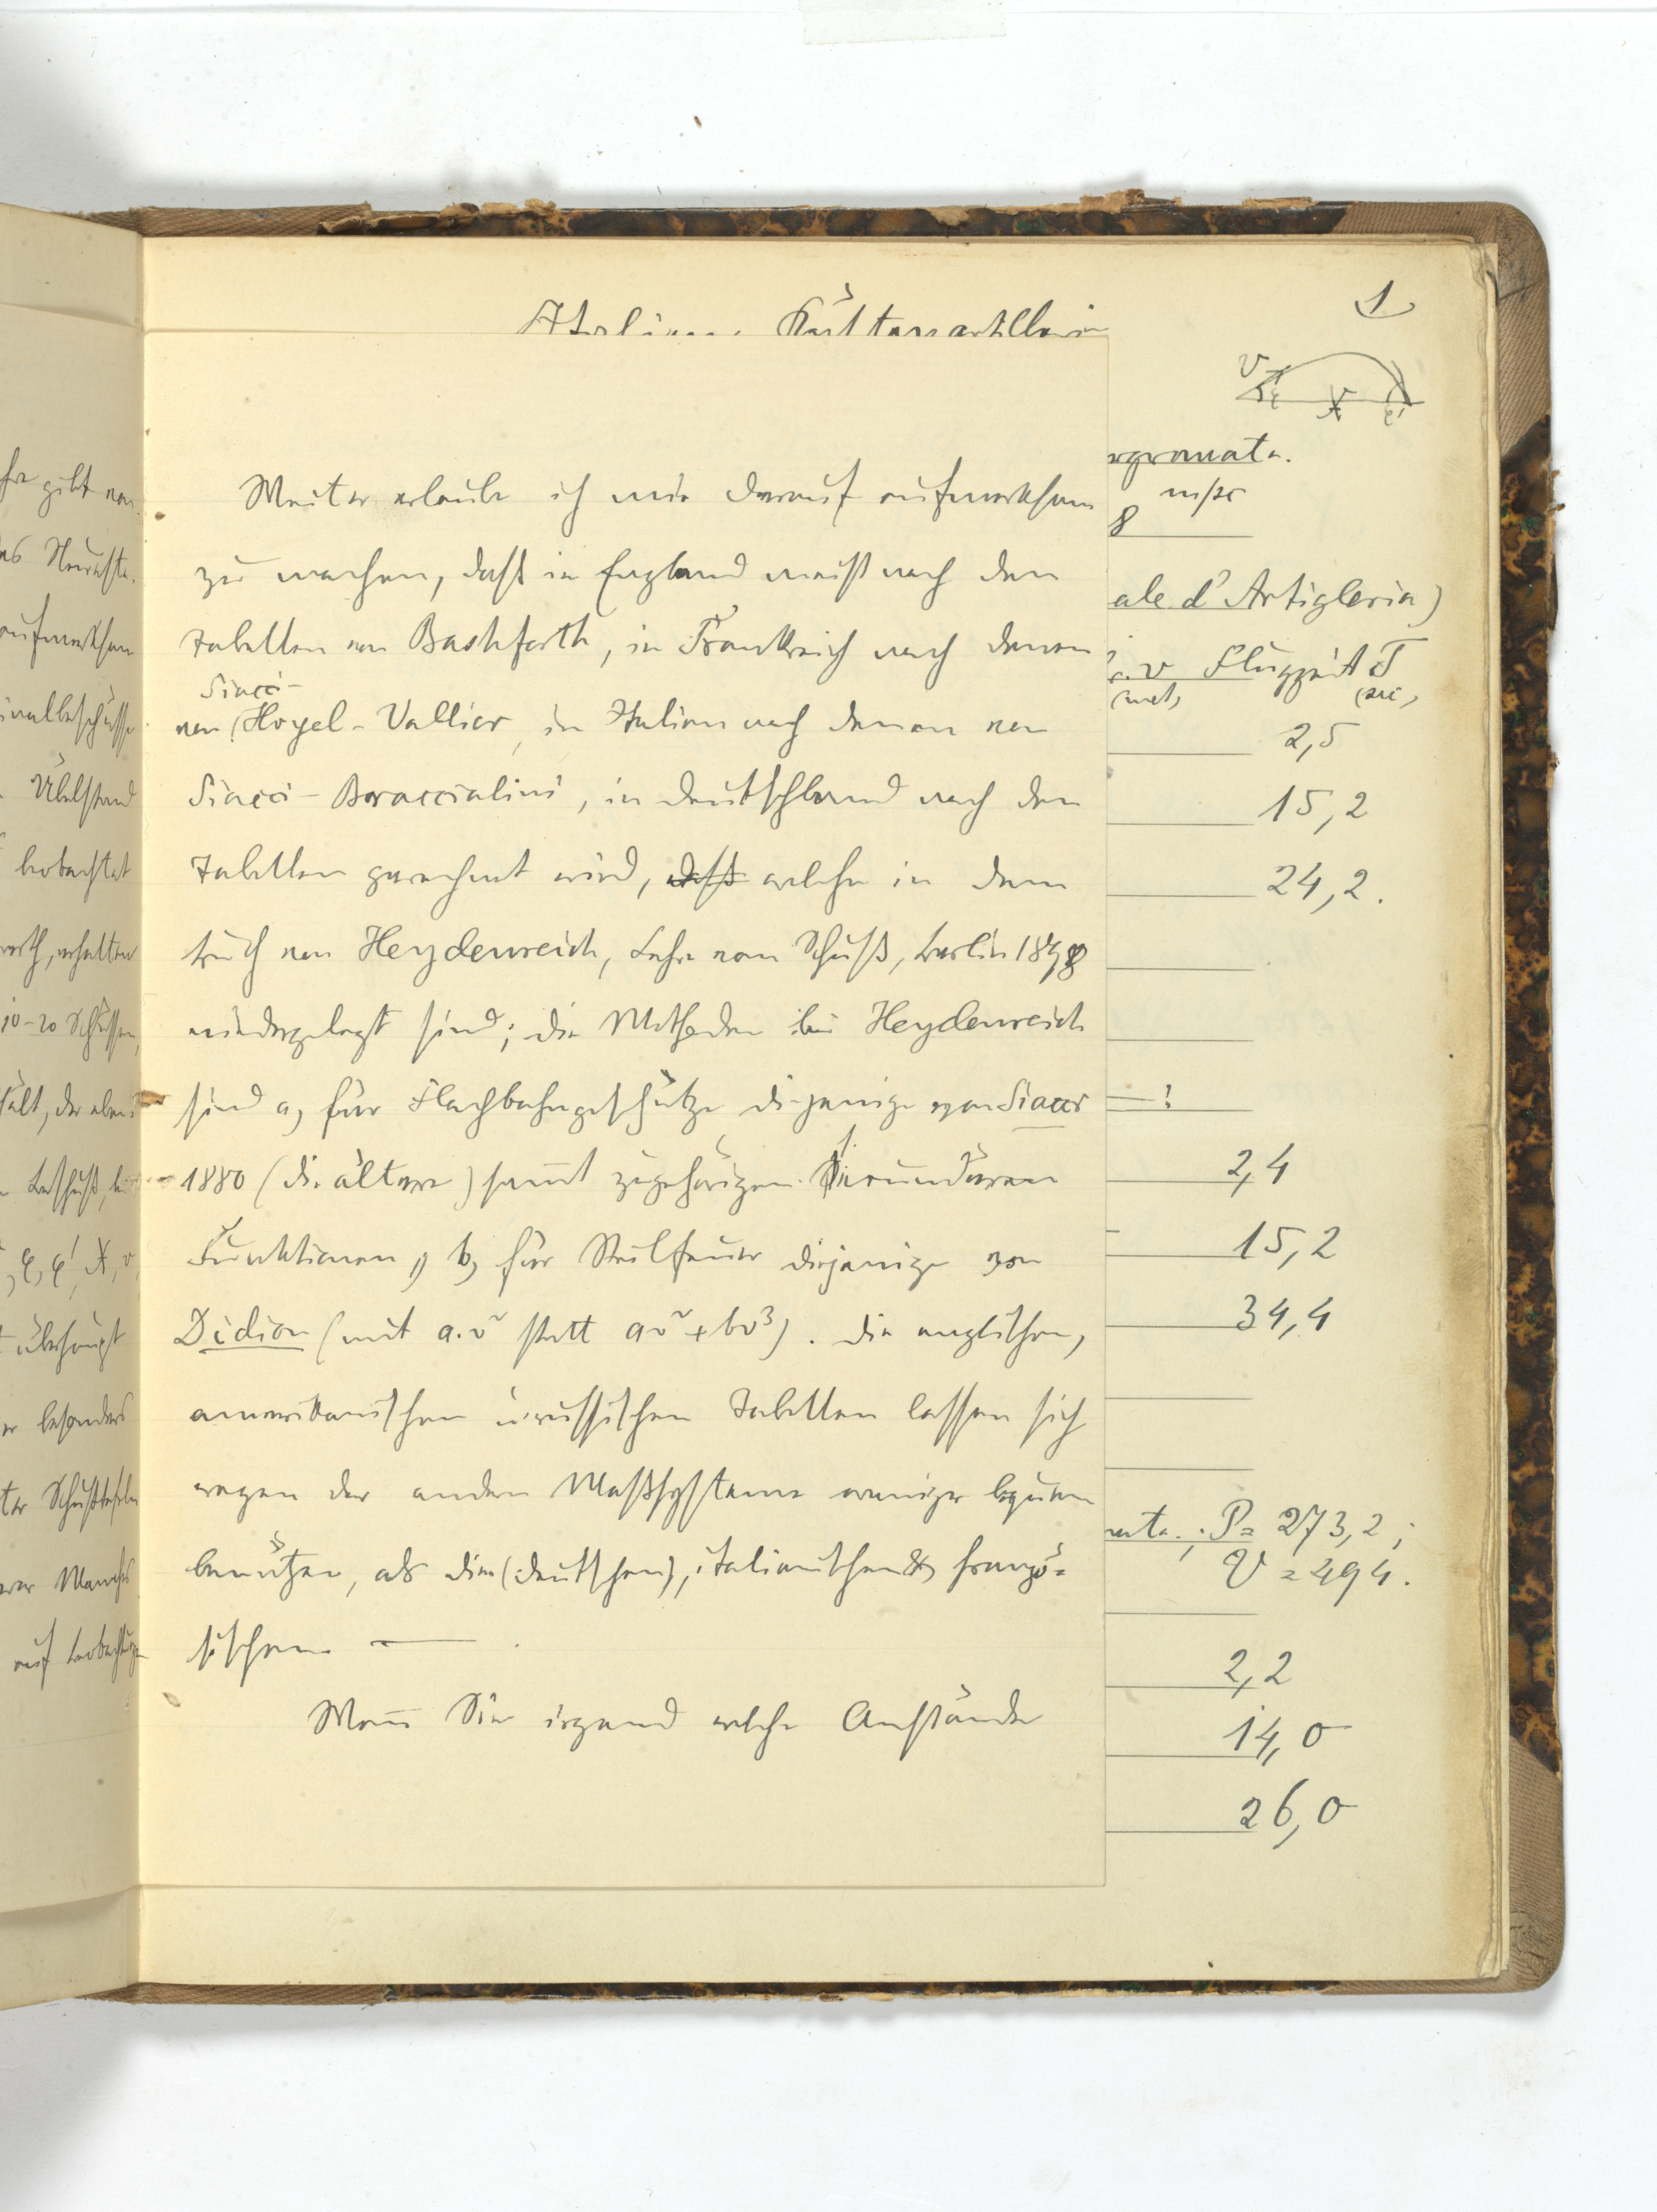 1
Italien. Küstenartillerie
v
φ X φ'
rgranate.
8 m/sec
ale d'Artigleria)
v Flugzeit T
(met) (sec)
2,5
15,2
24,2.
2,4
15,2
34,4
P = 273,2;
V = 494.
2,2
14,0
26,0
Weiter erlaube ich mir darauf aufmerksam
zu machen, daß in England meist nach den
Tabellen von Bashforth, in Frankreich nach denen
Siacci-
von (Hojel-Vallier, in Italien nach denen von
Siacci-Braccialini, in Deutschland nach den
Tabellen gerechnet wird, daß welche in dem
Buch von Heydenreich, Lehre vom Schuß, Berlin 1898
niedergelegt sind; die Methoden bei Heydenreich
sind a, für Flachbahngeschütze diejenige von Siacci
1880 (die ältere) samt zugehörigen sekundären
Funktionen, b, für Steilfeuer diejenige von
Didion (mit a.v² statt av²+bv³). Die englischen,
amerikanischen u. russischen Tabellen lassen sich
wegen der andern Maßsysteme weniger bequem
benützen, als die (deutschen), italienischen & franzö=
sischen —.
Wenn Sie irgend welche Anstände
gibt
das Neueste.
aufmerksam
Übelstand
beobachtet
erhalten
10-20 Schüssen,
φ, φ', X, v,
überhaupt
besonders
Schußtafeln
auf